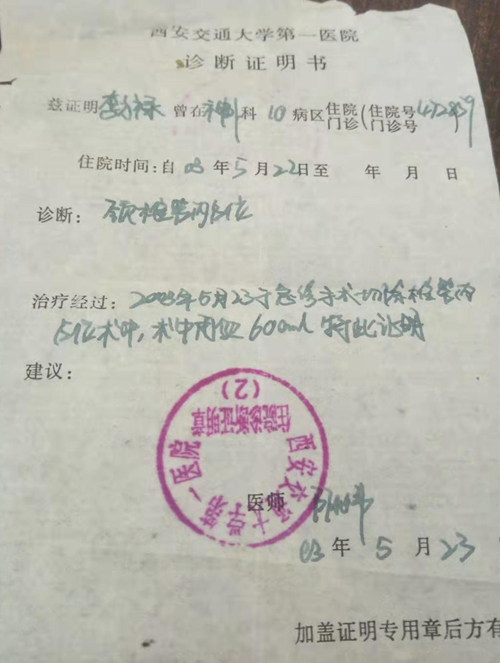 西安交通大学第一医院
诊断证明书
兹证明 曾在神外科 10 病区 住院 门诊 (住院号 门诊号 )
住院时间:自 03 年 5 月 22 日至 年 月 日
诊断: 颈椎管内占位
治疗经过: 2003年5月23于急诊手术切除椎管内
占位术中,术中用血600ml 特此证明
建议:
西安交通大学第一医院
住院诊断证明章
(2)
医师
03 年 5 月 23
加盖证明专用章后方有